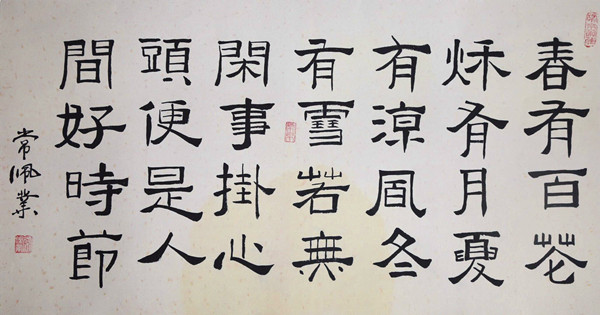 春有百花
秌有月夏
有涼風冬
有雪若無
閑事掛心
頭便是人
間好時節
常佩業